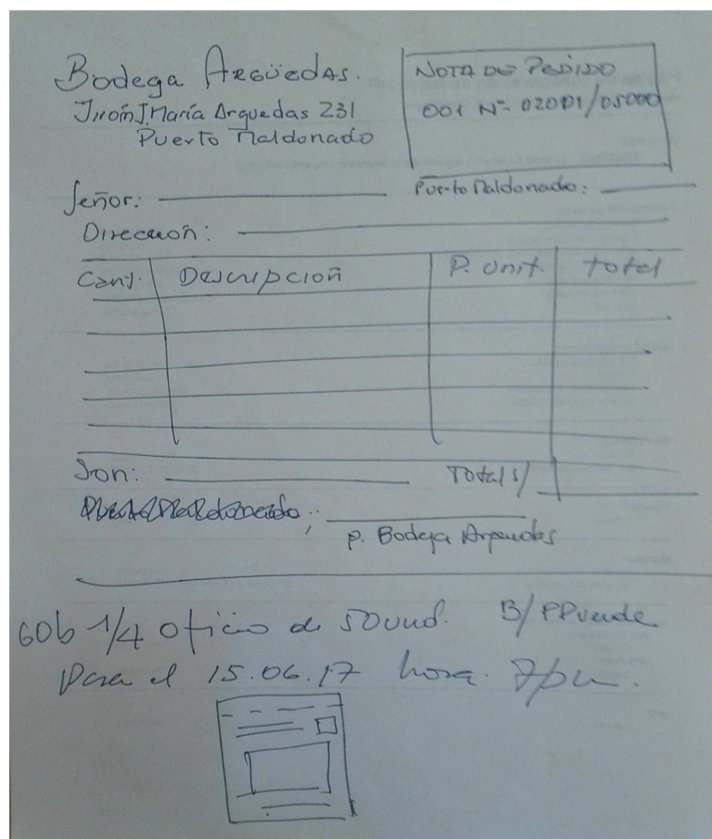 Bodega Argüedas.
Jirón J. María Arguedas 231
Puerto Maldonado
NOTA DE PEDIDO
001 Nº 02001/05000
Señor:
Puerto Maldonado:
Dirección:
Cant. Descripción P. Unit. Total
Son: Total S/
p. Bodega Arguedas
1/4 oficio de 50 und. B/PPverde
Para el 15.06.17 hora. 7pm.